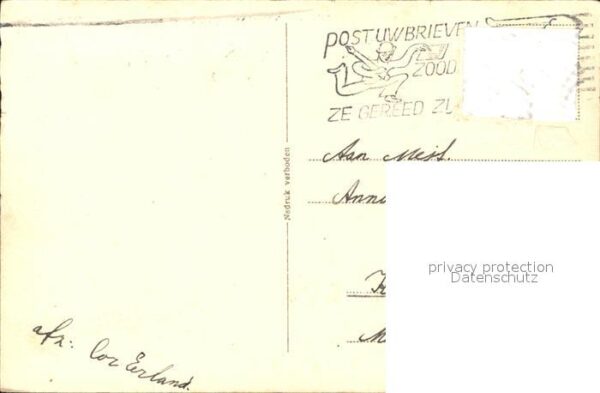 POST UW BRIEVEN
ZOOD
ZE GEREED ZIJ
Nadruk verboden
Aan Mejt.
Anni
privacy protection
Datenschutz
afz: Cor Eerland.